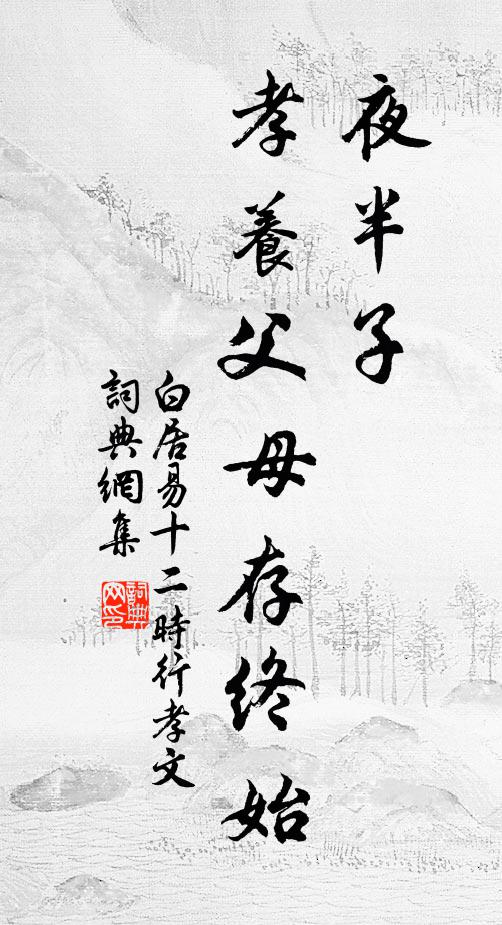 夜半子
孝養父母存終始
白居易十二時行孝文
詞典網集
詞典
网印